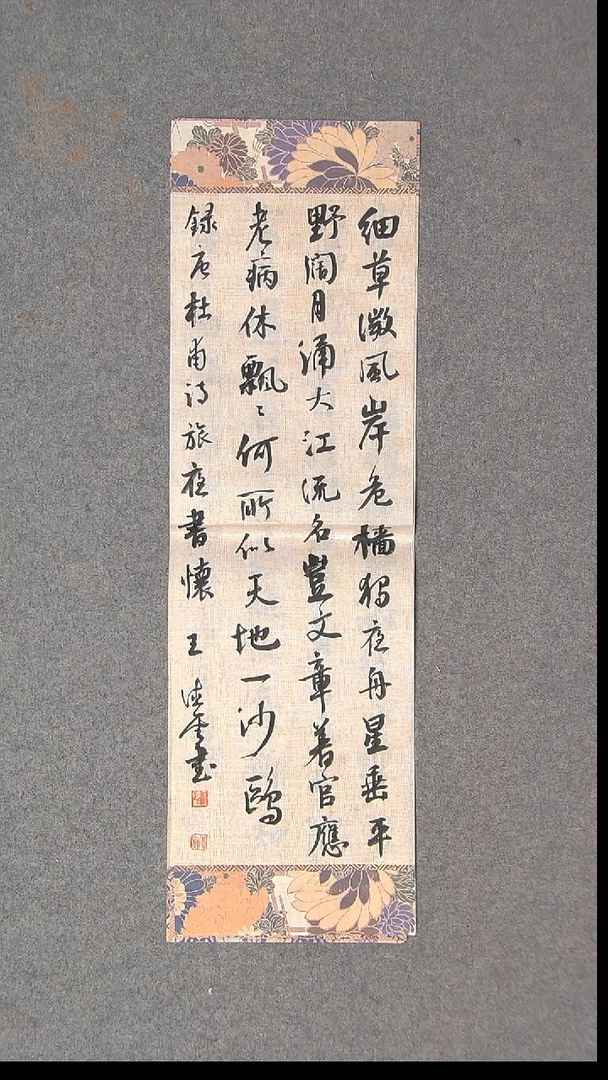 细草微風岸危樯独夜舟星垂平
野阔月涌大江流名豈文章著官應
老病休飘〻何所似天地一沙鸥
録唐杜甫诗旅夜書懷 王 書